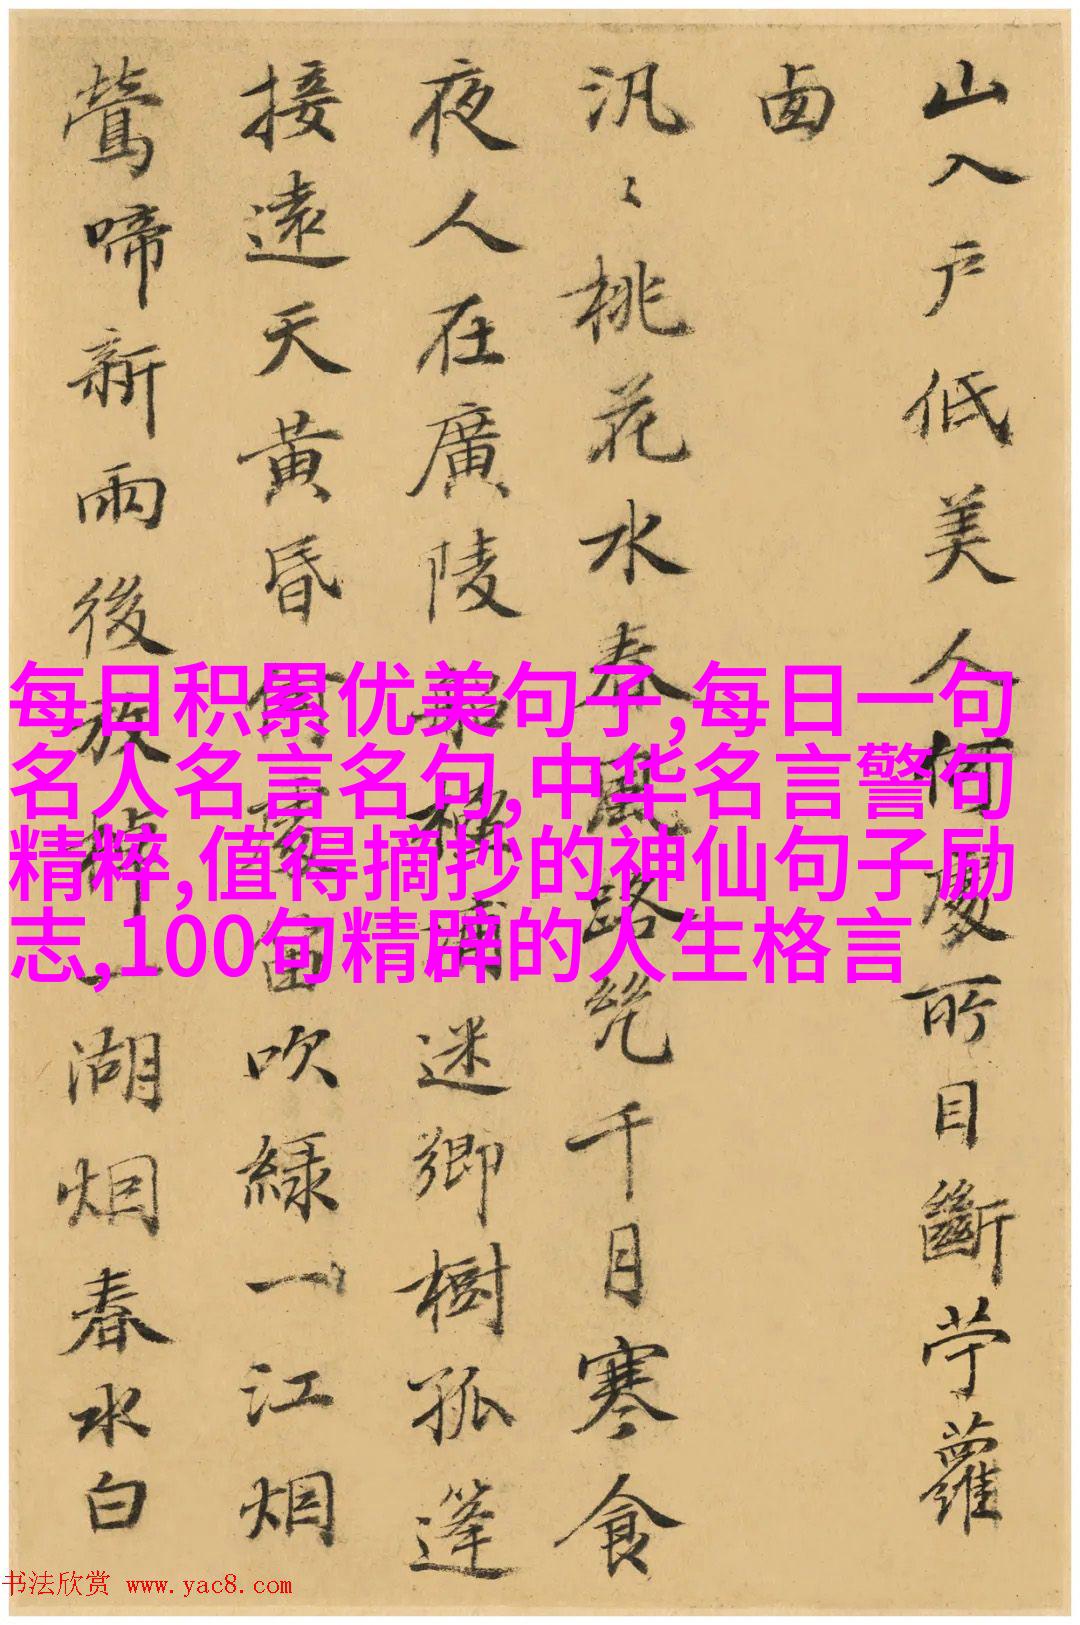 山入戶低美人何處所目斷苧蘿
西
汎〻桃花水春風路千月寒食
夜人在廣陵極浦迷鄉樹孤篷
接遠天黃昏吹綠一江烟
鶯啼新雨後放棹一湖烟春水白
每日积累优美句子,每日一句
名人名言名句,中华名言警句
精粹,值得摘抄的神仙句子励
志,100句精辟的人生格言
书法欣赏 www.yac8.com